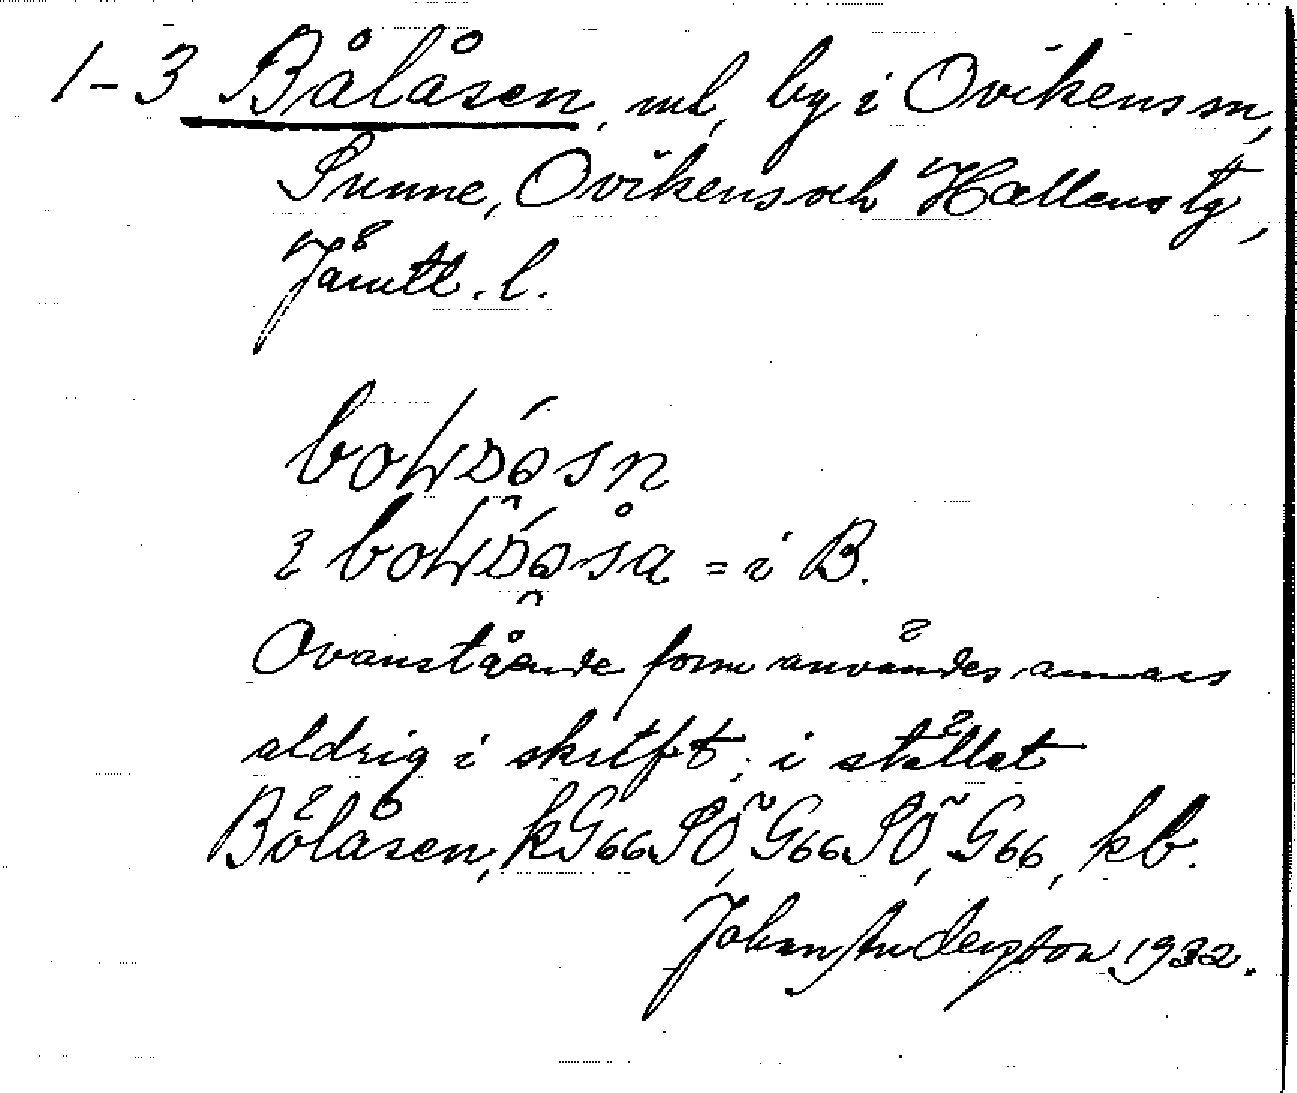 1-3 Bålåsen, ml, by i Ovikens sn,
Sunne, Oviken och Hallens tg,
Jämtl. l.
= i B.
Ovanstående form användes annars
aldrig i skrift; i stället
Bölåsen, kG66SÖ, G66SÖ, G66, kb.
Johan Anderzon 1932.